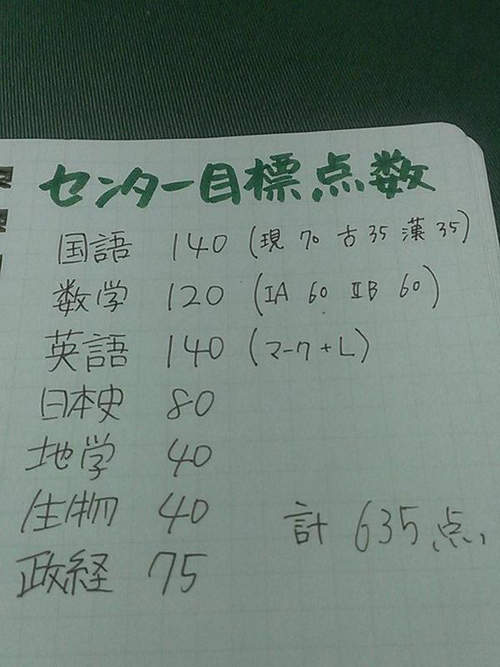 センター目標点数
国語 140 (現 70 古 35 漢 35)
数学 120 (IA 60 IIB 60)
英語 140 (マーク+L)
日本史 80
地学 40
生物 40
計 635点
政経 75